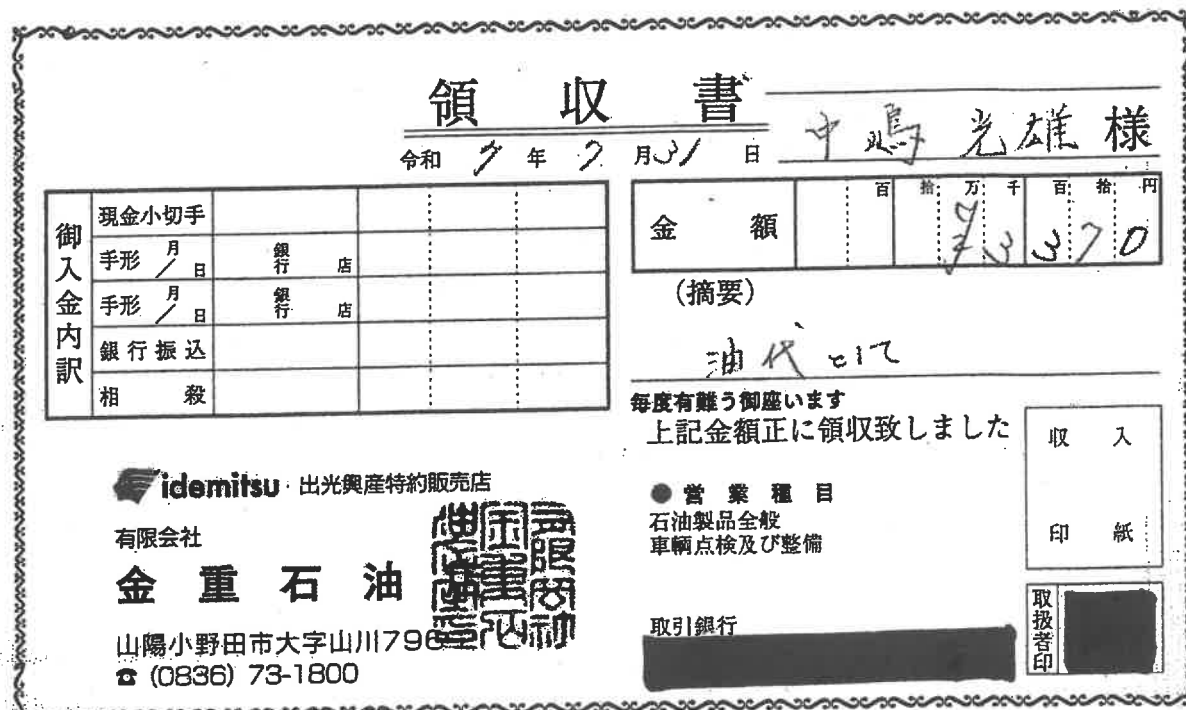 領収書
中嶋光雄 様
令和 7 年 7 月 31 日
御入金内訳
現金小切手
手形 月/日 銀行 店
手形 月/日 銀行 店
銀行振込
相殺
金額 百 拾 万 千 百 拾 円
3 3 7 0
(摘要)
油代として
毎度有難う御座います
上記金額正に領収致しました
収入
印紙
idemitsu 出光興産特約販売店
有限会社
金重石油
山陽小野田市大字山川796
☎ (0836) 73-1800
● 営業種目
石油製品全般
車輌点検及び整備
取引銀行
取扱者印